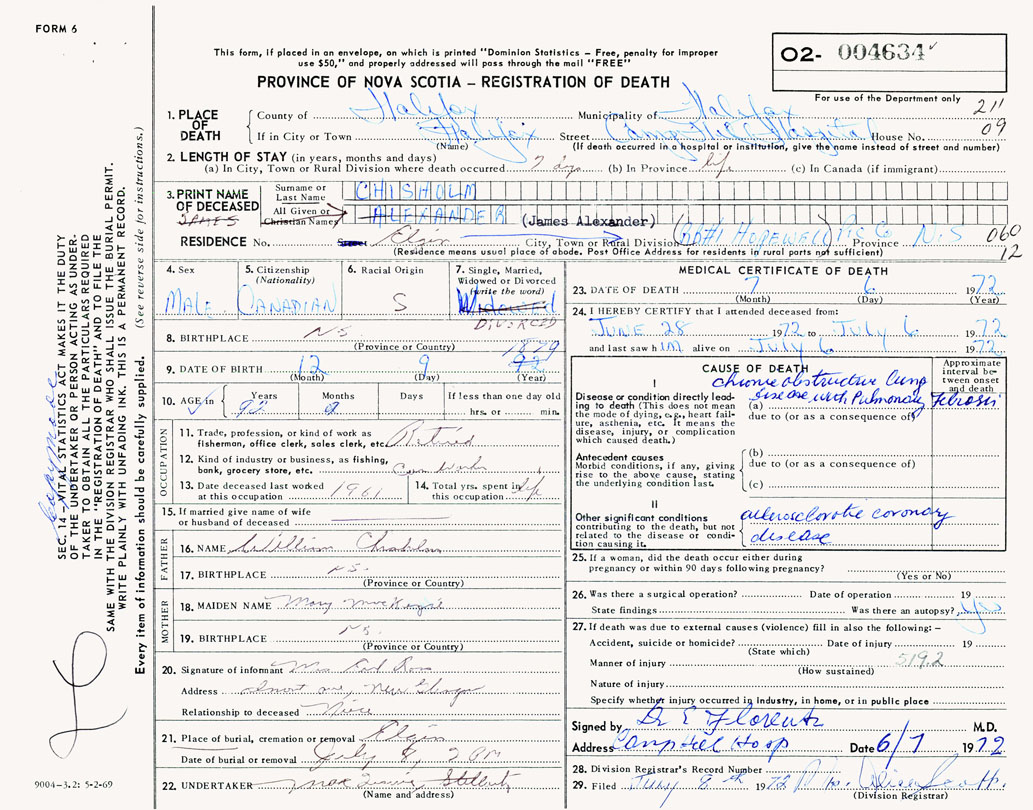 FORM 6
This form, if placed in an envelope, on which is printed "Dominion Statistics – Free, penalty for improper
use $50," and properly addressed will pass through the mail "FREE"
PROVINCE OF NOVA SCOTIA – REGISTRATION OF DEATH
O2- 004634
For use of the Department only
211
09
1. PLACE OF DEATH
County of Halifax Municipality of Halifax
If in City or Town Halifax Street Camp Hill Hospital House No.
(Name) (If death occurred in a hospital or institution, give the name instead of street and number)
2. LENGTH OF STAY (in years, months and days)
(a) In City, Town or Rural Division where death occurred 9 days (b) In Province life (c) In Canada (if immigrant)
3. PRINT NAME OF DECEASED
Surname or Last Name CHISHOLM
JAMES All Given or Christian Name ALEXANDER (James Alexander)
RESIDENCE No. Street Elgin City, Town or Rural Division HOPEWELL Province N.S 060
(Residence means usual place of abode. Post Office Address for residents in rural parts not sufficient) 12
4. Sex
MALE
5. Citizenship
(Nationality)
CANADIAN
6. Racial Origin
S
7. Single, Married,
Widowed or Divorced
(write the word)
Widowed
DIVORCED
8. BIRTHPLACE N.S.
(Province or Country)
1879
9. DATE OF BIRTH 12 9
(Month) (Day) (Year)
10. AGE in Years Months Days If less than one day old
92 hrs. or min.
OCCUPATION
11. Trade, profession, or kind of work as
fisherman, office clerk, sales clerk, etc. Retired
12. Kind of industry or business, as fishing,
bank, grocery store, etc.
13. Date deceased last worked
at this occupation 1961
14. Total yrs. spent in
this occupation life
15. If married give name of wife
or husband of deceased
FATHER
16. NAME William Chisholm
17. BIRTHPLACE N.S.
(Province or Country)
MOTHER
18. MAIDEN NAME Mary MacKenzie
19. BIRTHPLACE N.S.
(Province or Country)
20. Signature of informant Ross
Address New Glasgow
Relationship to deceased Niece
21. Place of burial, cremation or removal Elgin
Date of burial or removal July 8, 2 PM
22. UNDERTAKER
(Name and address)
MEDICAL CERTIFICATE OF DEATH
23. DATE OF DEATH 7 6 1972
(Month) (Day) (Year)
24. I HEREBY CERTIFY that I attended deceased from:
JUNE 28 1972 to July 6 1972
and last saw him alive on July 6 1972
CAUSE OF DEATH
Approximate
interval be-
tween onset
and death
I
Disease or condition directly lead-
ing to death (This does not mean
the mode of dying, e.g., heart fail-
ure, asthenia, etc. It means the
disease, injury, or complication
which caused death.)
chronic obstructive lung
(a) disease with Pulmonary Fibrosis
due to (or as a consequence of)
Antecedent causes
Morbid conditions, if any, giving
rise to the above cause, stating
the underlying condition last.
(b)
due to (or as a consequence of)
(c)
II
Other significant conditions
contributing to the death, but not
related to the disease or condi-
tion causing it.
arteriosclerotic coronary
disease
25. If a woman, did the death occur either during
pregnancy or within 90 days following pregnancy?
(Yes or No)
26. Was there a surgical operation? Date of operation 19
State findings Was there an autopsy? Yes
27. If death was due to external causes (violence) fill in also the following: –
Accident, suicide or homicide? Date of injury 19
(State which)
Manner of injury 519.2
(How sustained)
Nature of injury
Specify whether injury occurred in industry, in home, or in public place
Signed by Dr E Florentz M.D.
Address Camp Hill Hosp Date 6/7 1972
28. Division Registrar's Record Number
29. Filed July 8th 1972
(Division Registrar)
SEC. 14 – VITAL STATISTICS ACT MAKES IT THE DUTY
OF THE UNDERTAKER OR PERSON ACTING AS UNDER-
TAKER TO OBTAIN ALL THE PARTICULARS REQUIRED
IN THE "REGISTRATION OF DEATH" AND TO FILE THE
SAME WITH THE DIVISION REGISTRAR WHO SHALL ISSUE THE BURIAL PERMIT.
WRITE PLAINLY WITH UNFADING INK. THIS IS A PERMANENT RECORD.
Every item of information should be carefully supplied. (See reverse side for instructions.)
9004-3.2: 5-2-69